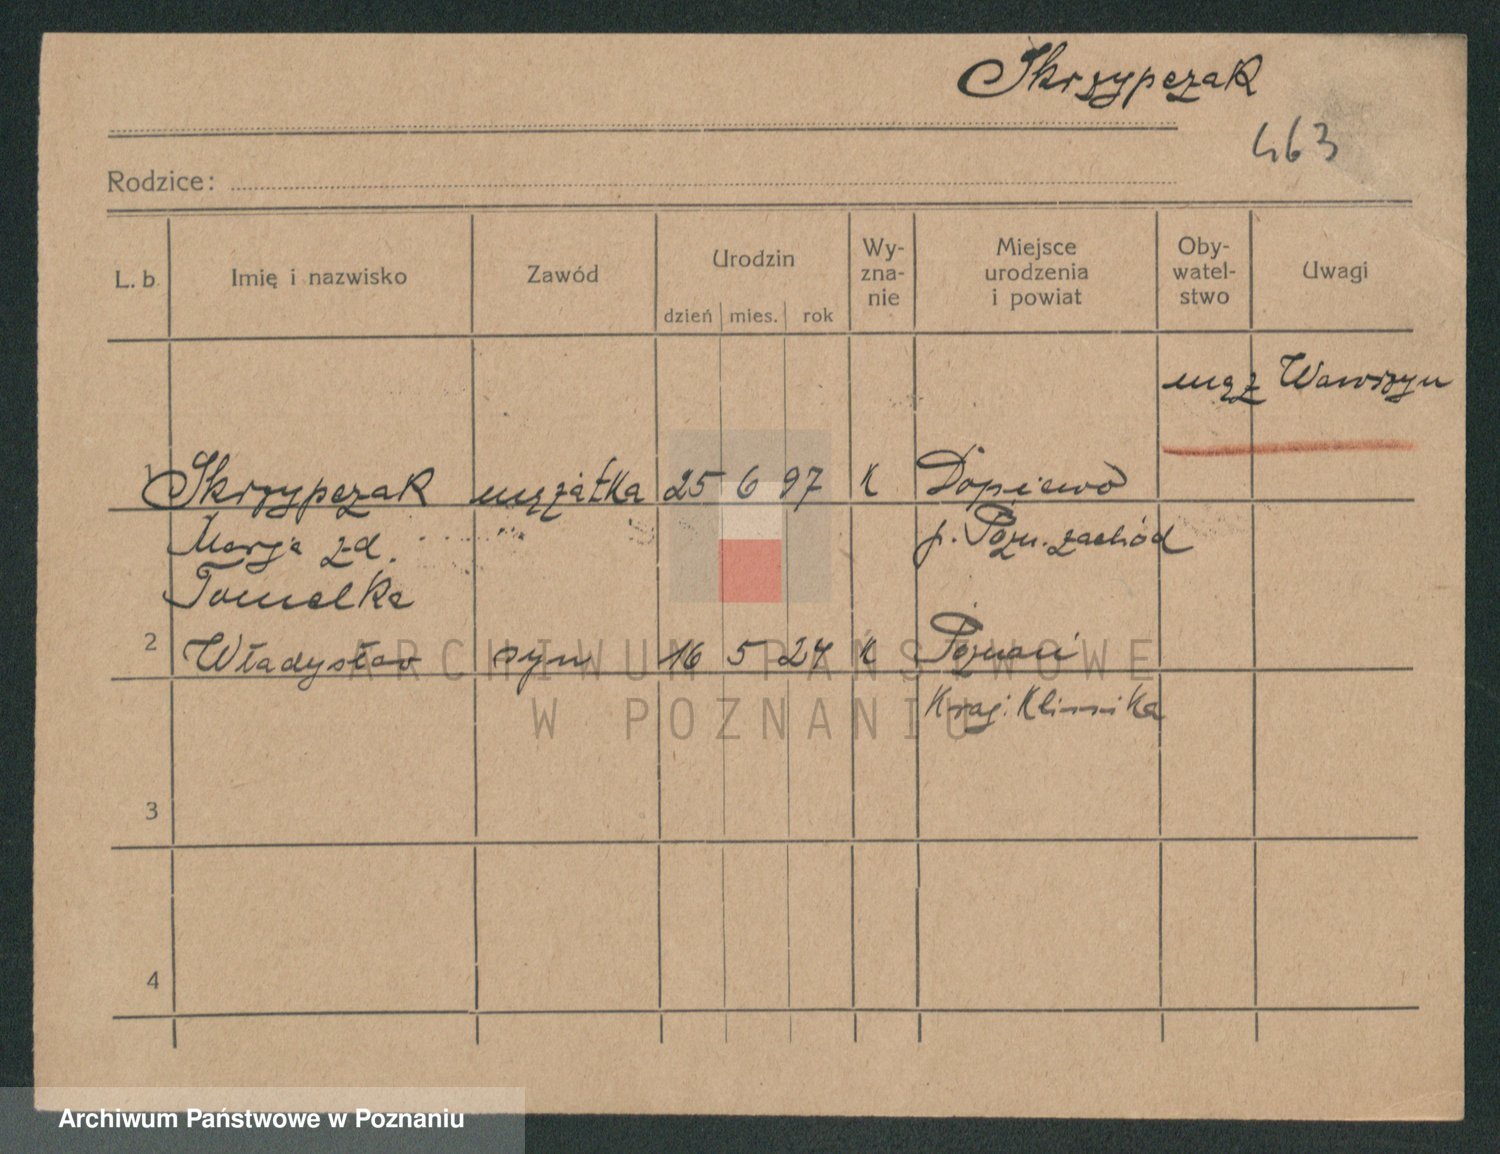 Skrzypczak
463
Rodzice:
L. b. Imię i nazwisko Zawód Urodzin Wy-zna-nie Miejsce urodzenia i powiat Oby-watel-stwo Uwagi
dzień mies. rok
mąż Wawrzyn
1 Skrzypczak mężatka 25 6 97 K Dopiewo
Marja z d. p. Pozn. zachód
Tomelka
2 Władysław syn 16 5 24 K Poznań
Kraj. Klinika
3
4
ARCHIWUM PAŃSTWOWE
W POZNANIU
Archiwum Państwowe w Poznaniu